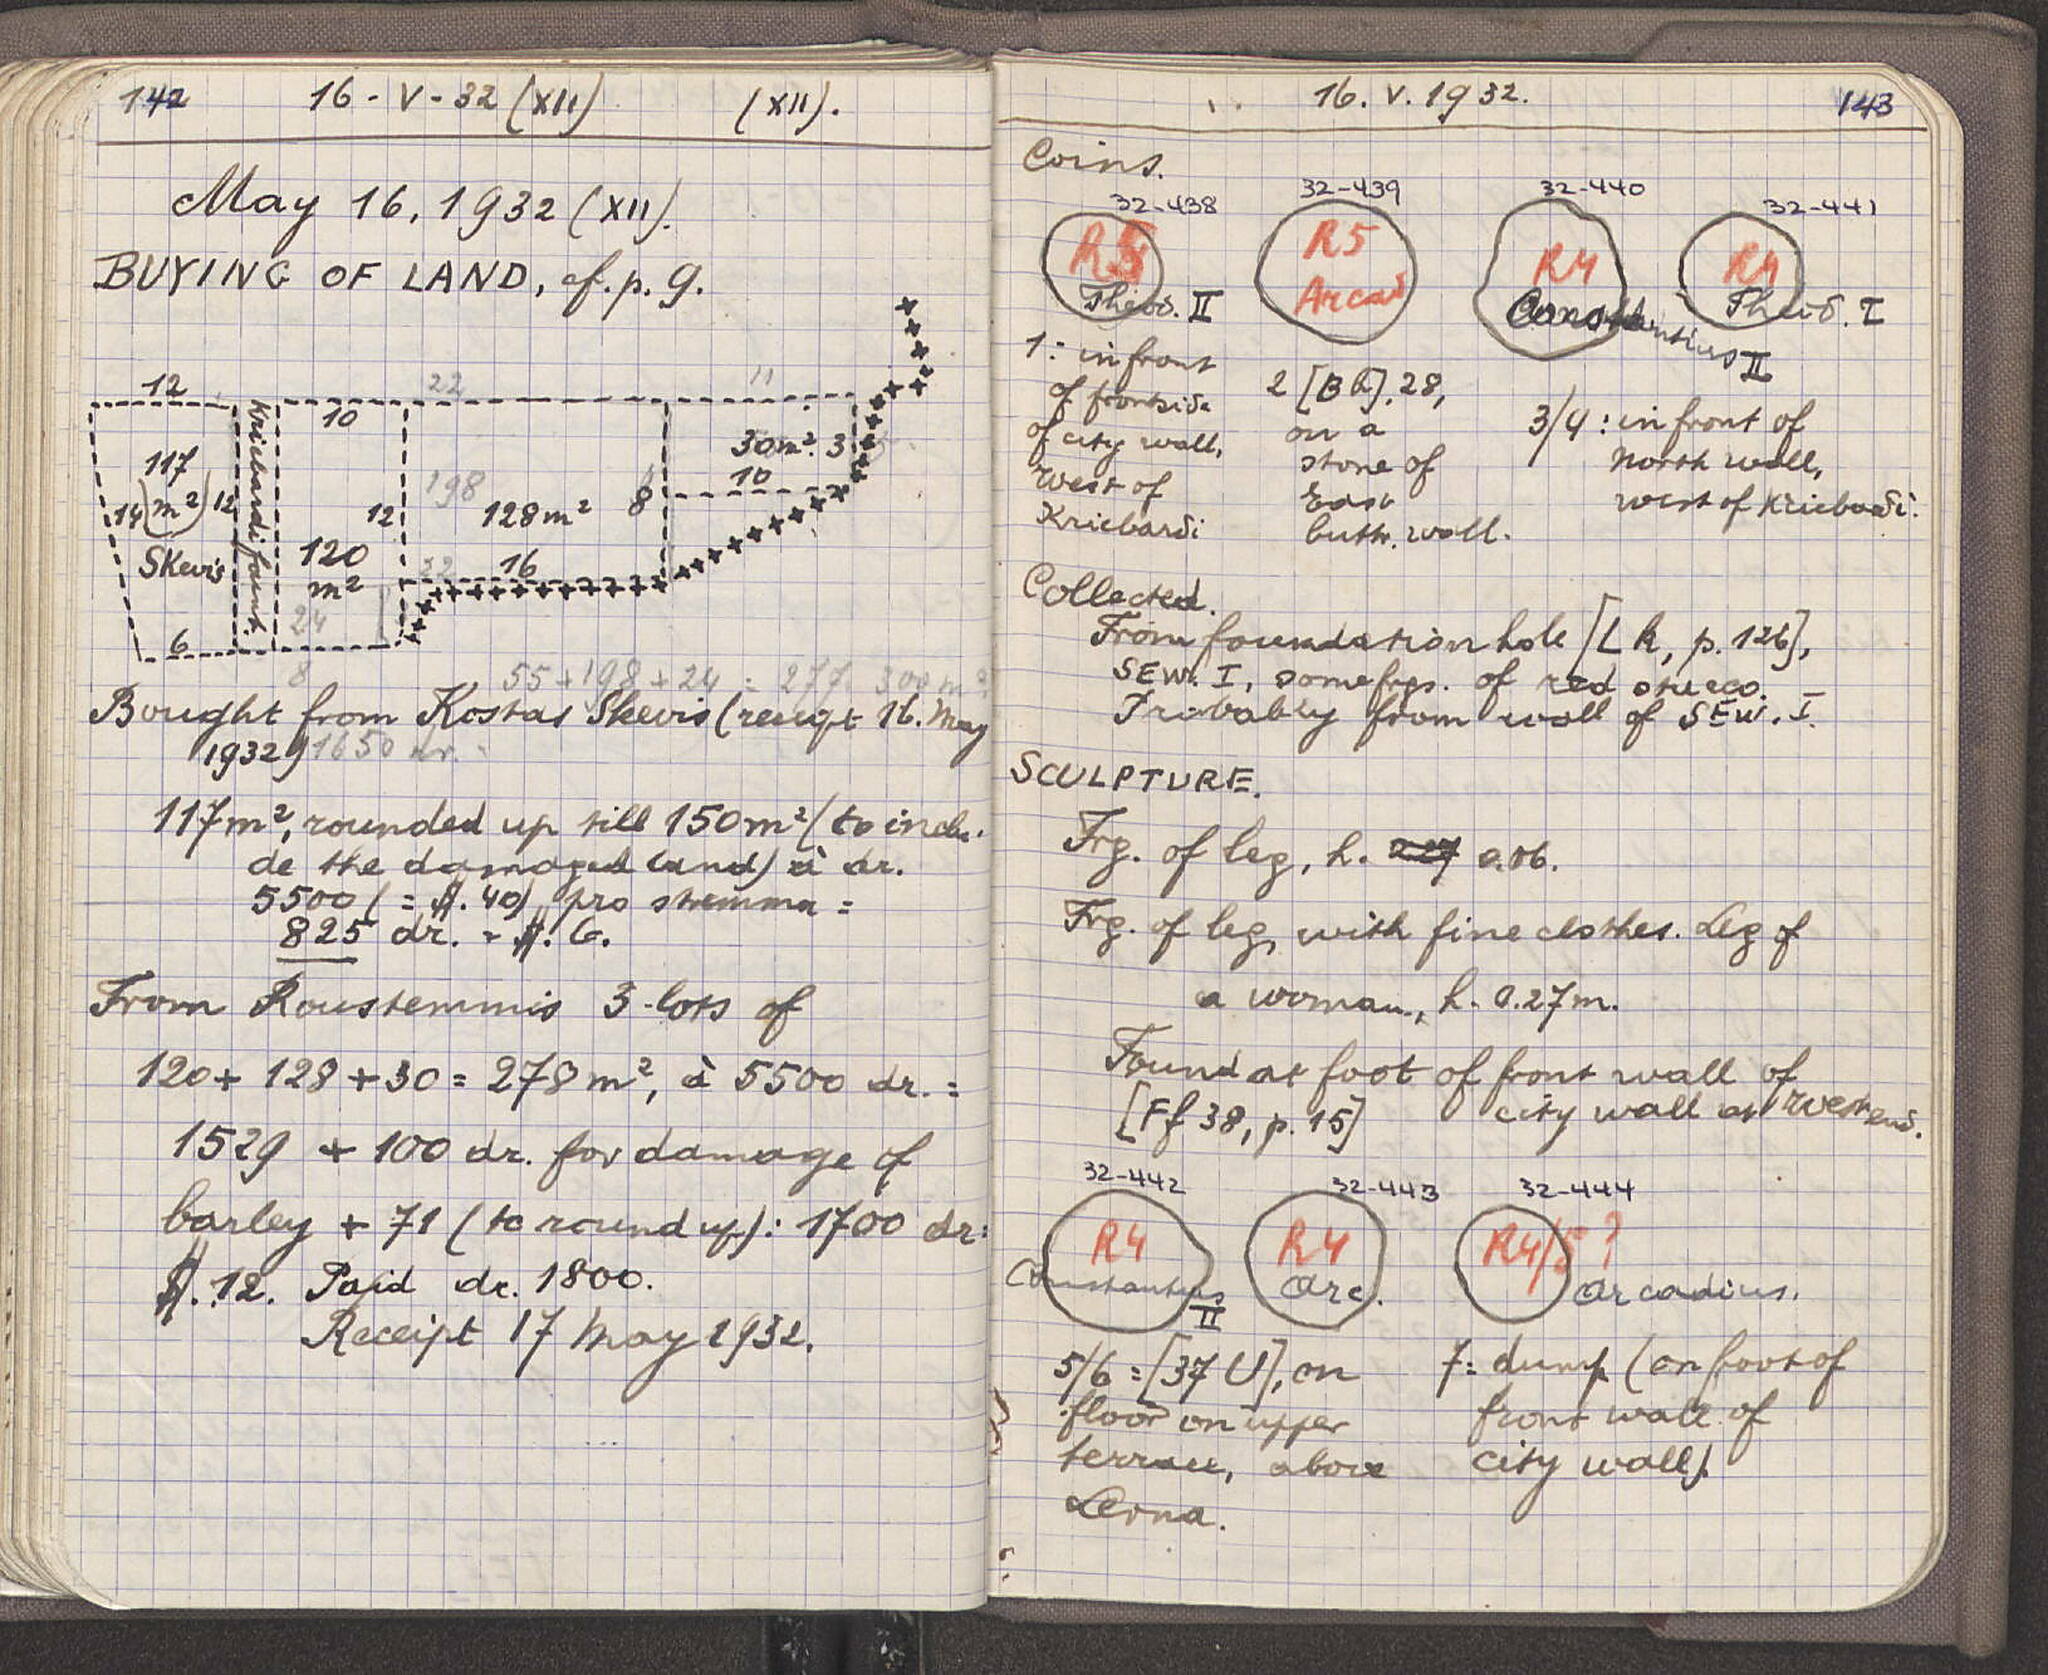 142 16-V-32 (XII) (XII).
May 16, 1932 (XII).
BUYING OF LAND, cf. p. 9.
12
10
22
11
117
(m²)
14
12
Skevis
6
Kriebardi fount.
120
m²
12
24
8
198
128 m²
8
22
16
30 m². 3
10
55+198+24 = 277 300 m²
Bought from Kostas Skevis (receipt 16. May
1932) 1650 dr.
117 m², rounded up till 150 m² (to inclu-
de the damaged land) à dr.
5500 (= $. 40) pro stremma =
825 dr. = $. 6.
From Roustemmis 3 lots of
120 + 128 + 30 = 278 m², à 5500 dr. =
1529 + 100 dr. for damage of
barley + 71 (to round up): 1700 dr=
$. 12. Paid dr. 1800.
Receipt 17 May 1932.
16. V. 1932. 143
Coins.
32-438 32-439 32-440 32-441
R5 R5 R4 R4
Theod. II Arcad Constantius II Theod. I
1: in front
of frontside
of city wall,
West of
Kriebardi
2 [Bb], 28,
on a
stone of
East
buttr. wall.
3/4: in front of
North wall,
west of Kriebardi.
Collected.
From foundation hole [Lk, p. 126],
SEW. I, some frgs. of red stucco.
Probably from wall of SEW. I.
SCULPTURE.
Frg. of leg, h. 0.06.
Frg. of leg, with fine clothes. Leg of
a woman, h. 0.27 m.
Found at foot of front wall of
[Ff 38, p. 15] city wall at West end.
32-442 32-443 32-444
R4 R4 R4/5?
Constantius II Arc. Arcadius.
5/6 = [37 U], on
floor on upper
terrace, above
Lerna.
7: dump (on foot of
front wall of
city wall).